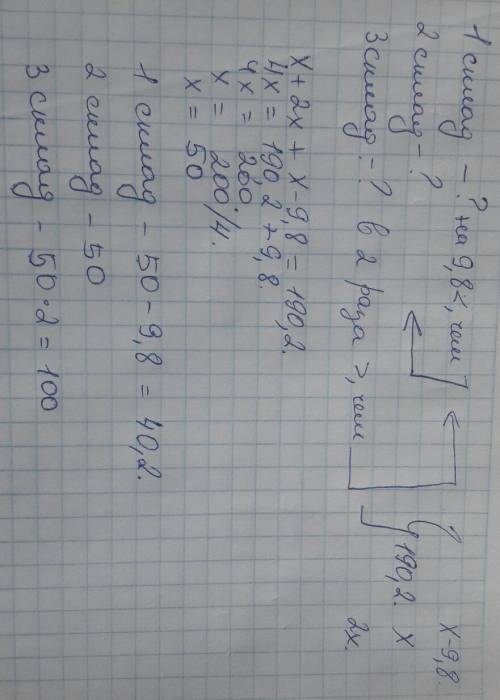 1 склад - ? на 9,8 <, чем x-9,8.
2 склад - ? 190,2. x
3 склад - ? в 2 раза >, чем 2x.
x + 2x + x - 9,8 = 190,2.
4x = 190,2 + 9,8.
4x = 200.
x = 200/4.
x = 50
1 склад - 50 - 9,8 = 40,2.
2 склад - 50
3 склад - 50·2 = 100